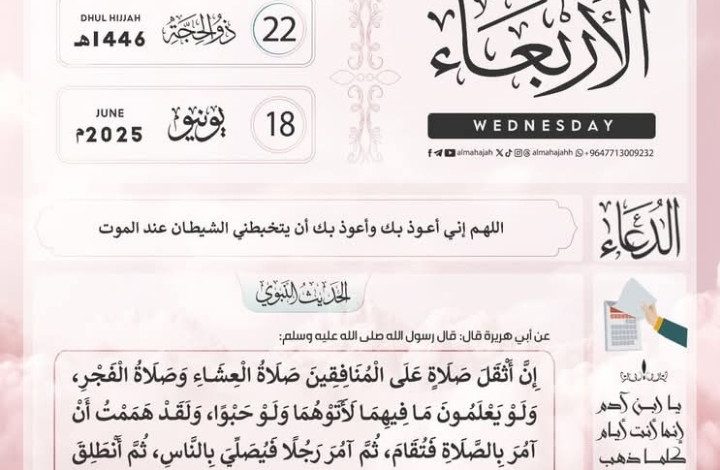 الأربعاء
WEDNESDAY
almahajah almahajahh +9647713009232
22 ذو الحجة DHUL HIJJAH 1446هـ
18 يونيو JUNE 2025م
الدعاء
اللهم إني أعوذ بك وأعوذ بك أن يتخبطني الشيطان عند الموت
الحديث النبوي
عن أبي هريرة قال: قال رسول الله صلى الله عليه وسلم:
إِنَّ أَثْقَلَ صَلَاةٍ عَلَى الْمُنَافِقِينَ صَلَاةُ الْعِشَاءِ وَصَلَاةُ الْفَجْرِ،
وَلَوْ يَعْلَمُونَ مَا فِيهِمَا لَأَتَوْهُمَا وَلَوْ حَبْوًا، وَلَقَدْ هَمَمْتُ أَنْ
آمُرَ بِالصَّلَاةِ فَتُقَامَ، ثُمَّ آمُرَ رَجُلًا فَيُصَلِّيَ بِالنَّاسِ، ثُمَّ أَنْطَلِقَ
يا ابن آدم
إنما أنت أيام
كلما ذهب